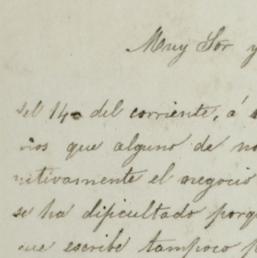 Muy Sor y
del 14 del corriente, á
que alguno de no
nitivamente el negocio
se ha dificultado porq
que escribe tampoco p